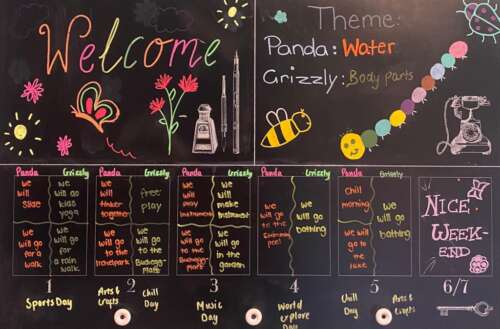 Welcome
Theme:
Panda: Water
Grizzly: Body parts
Panda Grizzly
we will slide
we will go kids yoga
we will go for a walk
we will go for a rain walk
Panda Grizzly
we will tinker together
free play
we will go to the
we will go to the
Panda Grizzly
we will play instrument
we will make instrument
we will go to the
we will go in the garden
Panda Grizzly
we will go to the
we will go bathing
Panda Grizzly
Chill morning
we will go to the lake
we will go bathing
NICE
WEEK-
END
1 2 3 4 5 6/7
Sports Day
Arts & Crafts
Chill Day
Music Day
World explore Day
Chill Day
Arts & Crafts